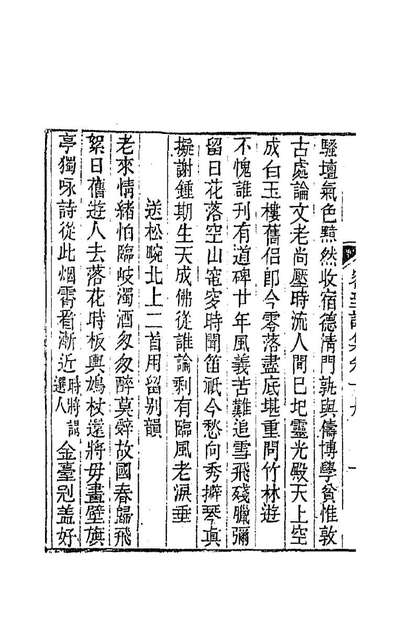 騷壇氣色黯然收宿德淸門孰與儔博學貧惟敦
古處論文老尚壓時流人間已圯靈光殿天上空
成白玉樓舊侣卽今零落盡底堪重問竹林遊
不愧誰刋有道碑廿年風義苦難追雪飛殘臘彌
留日花落空山窀穸時聞笛祇今愁向秀擗琴真
擬謝鍾期生天成佛從誰論剩有臨風老淚垂
送松畹北上二首用留别韻
老來情緒怕臨岐濁酒匆匆醉莫辭故國春歸飛
絮日舊遊人去落花時板輿鳩杖還將毋畫壁旗
亭獨咏詩從此烟霄看漸近時將謁選人金臺冠盖好